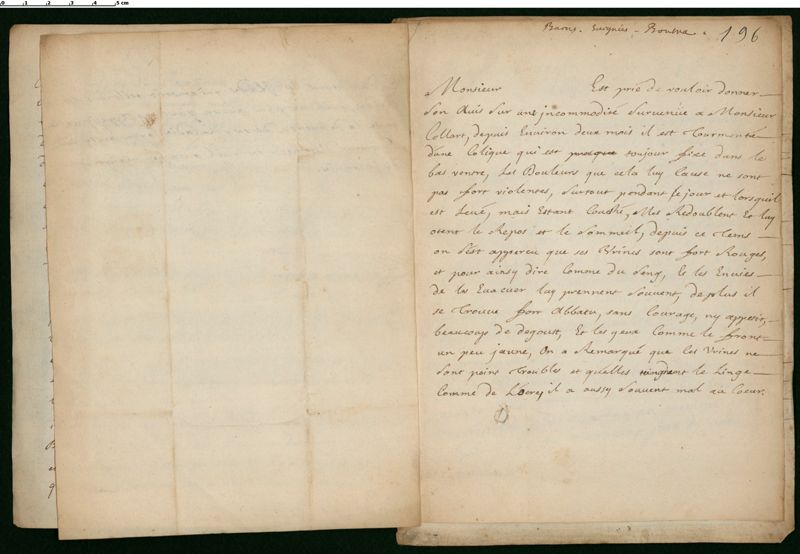 0 1 2 3 4 5 cm
196
Monsieur Est prié de vouloir donner
Son Avis Sur une jncommodité Survenüe a Monsieur
Collart, depuis Environ deux mois il est Tourmenté
d'une Colique qui est presque toujour fixe dans le
bas ventre, Les Douleurs que cela luy Cause ne sont
pas fort violentes, Surtout pendant le jour et lorsquil
est Levé, mais Estant Couché, Elles Redoublent Et luy
otent le Repos et le Sommeil, depuis ce Tems
on s'est apperceu que ses Vrines sont fort Rouges,
et pour ainsy dire Comme du Sang, Et les Envies
de les Evacuer luy prennent Souvent, de plus il
se Trouve fort Abbatu, sans Courage, ny appetit,
beaucoup de degoust, Et les yeux Comme le front
un peu jaune, On a Remarqué que les Vrines ne
sont points Troubles et quelles teindent le Linge
Comme de L'ocre, il a aussy Souvent mal au Coeur.